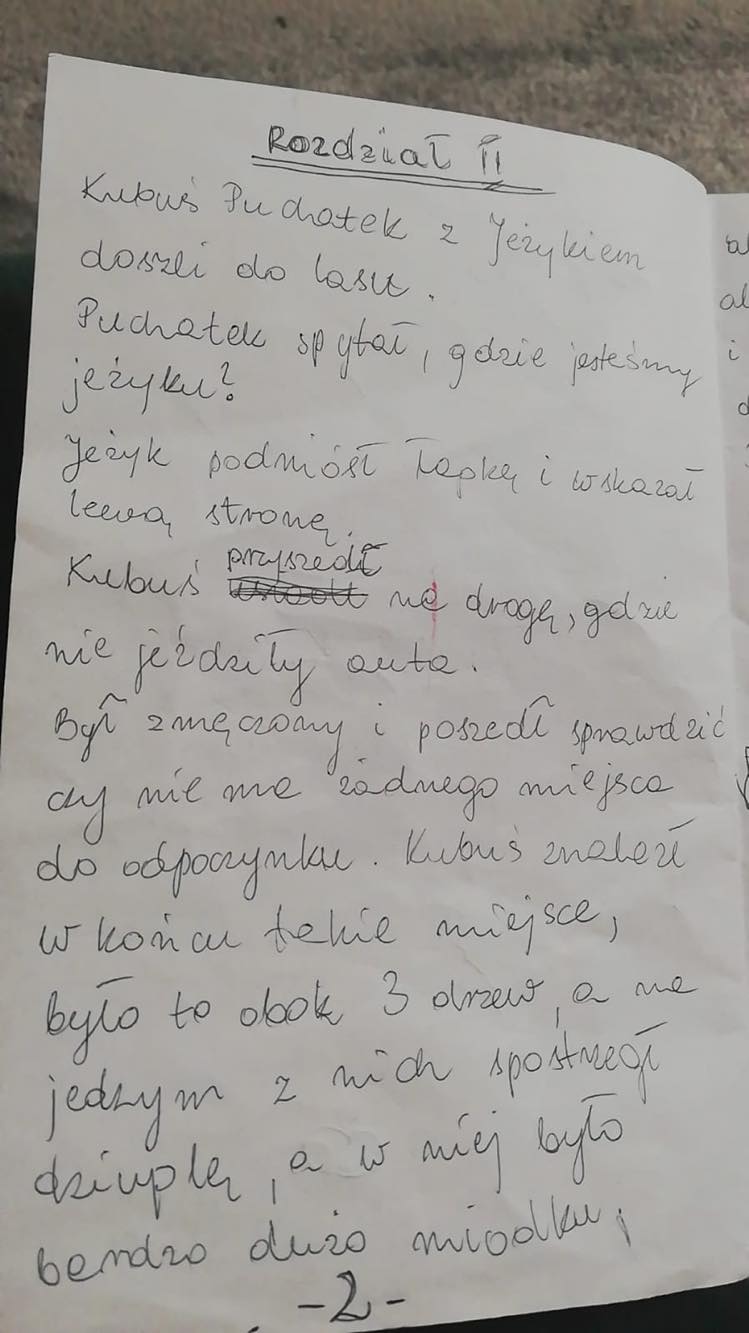 Rozdział II
Kubuś Puchatek z Jeżykiem
doszli do lasu.
Puchatek spytał, gdzie jesteśmy
jeżyku?
Jeżyk podniósł łapkę i wskazał
lewą stronę.
Kubuś przyszedł na drogę, gdzie
nie jeździły auta.
Był zmęczony i poszedł sprawdzić
czy nie ma żadnego miejsca
do odpoczynku. Kubuś znalazł
w końcu takie miejsce,
było to obok 3 drzew, a na
jednym z nich spostrzegł
dziuplę, a w niej było
bardzo dużo miodku,
-2-
al
i